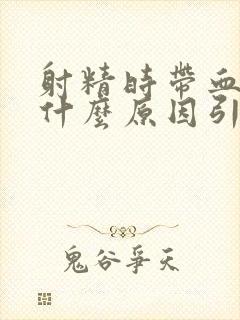 射精時帶血
什麼原因引
鬼谷爭天